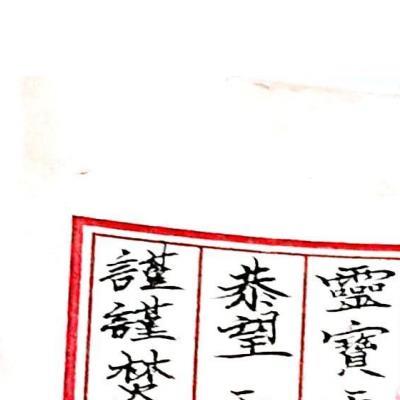 靈寶
恭望
謹謹焚